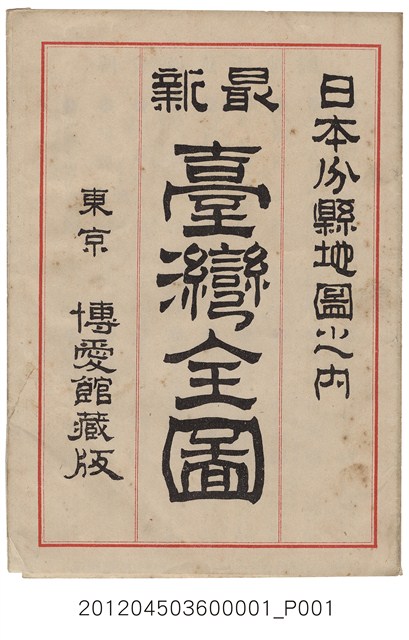 日本分縣地圖之內
最新
臺灣全圖
東京
博愛館藏版
201204503600001_P001